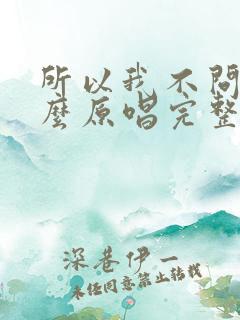 所以我不問
麼原唱完整
深巷伊一
未經同意禁止轉載